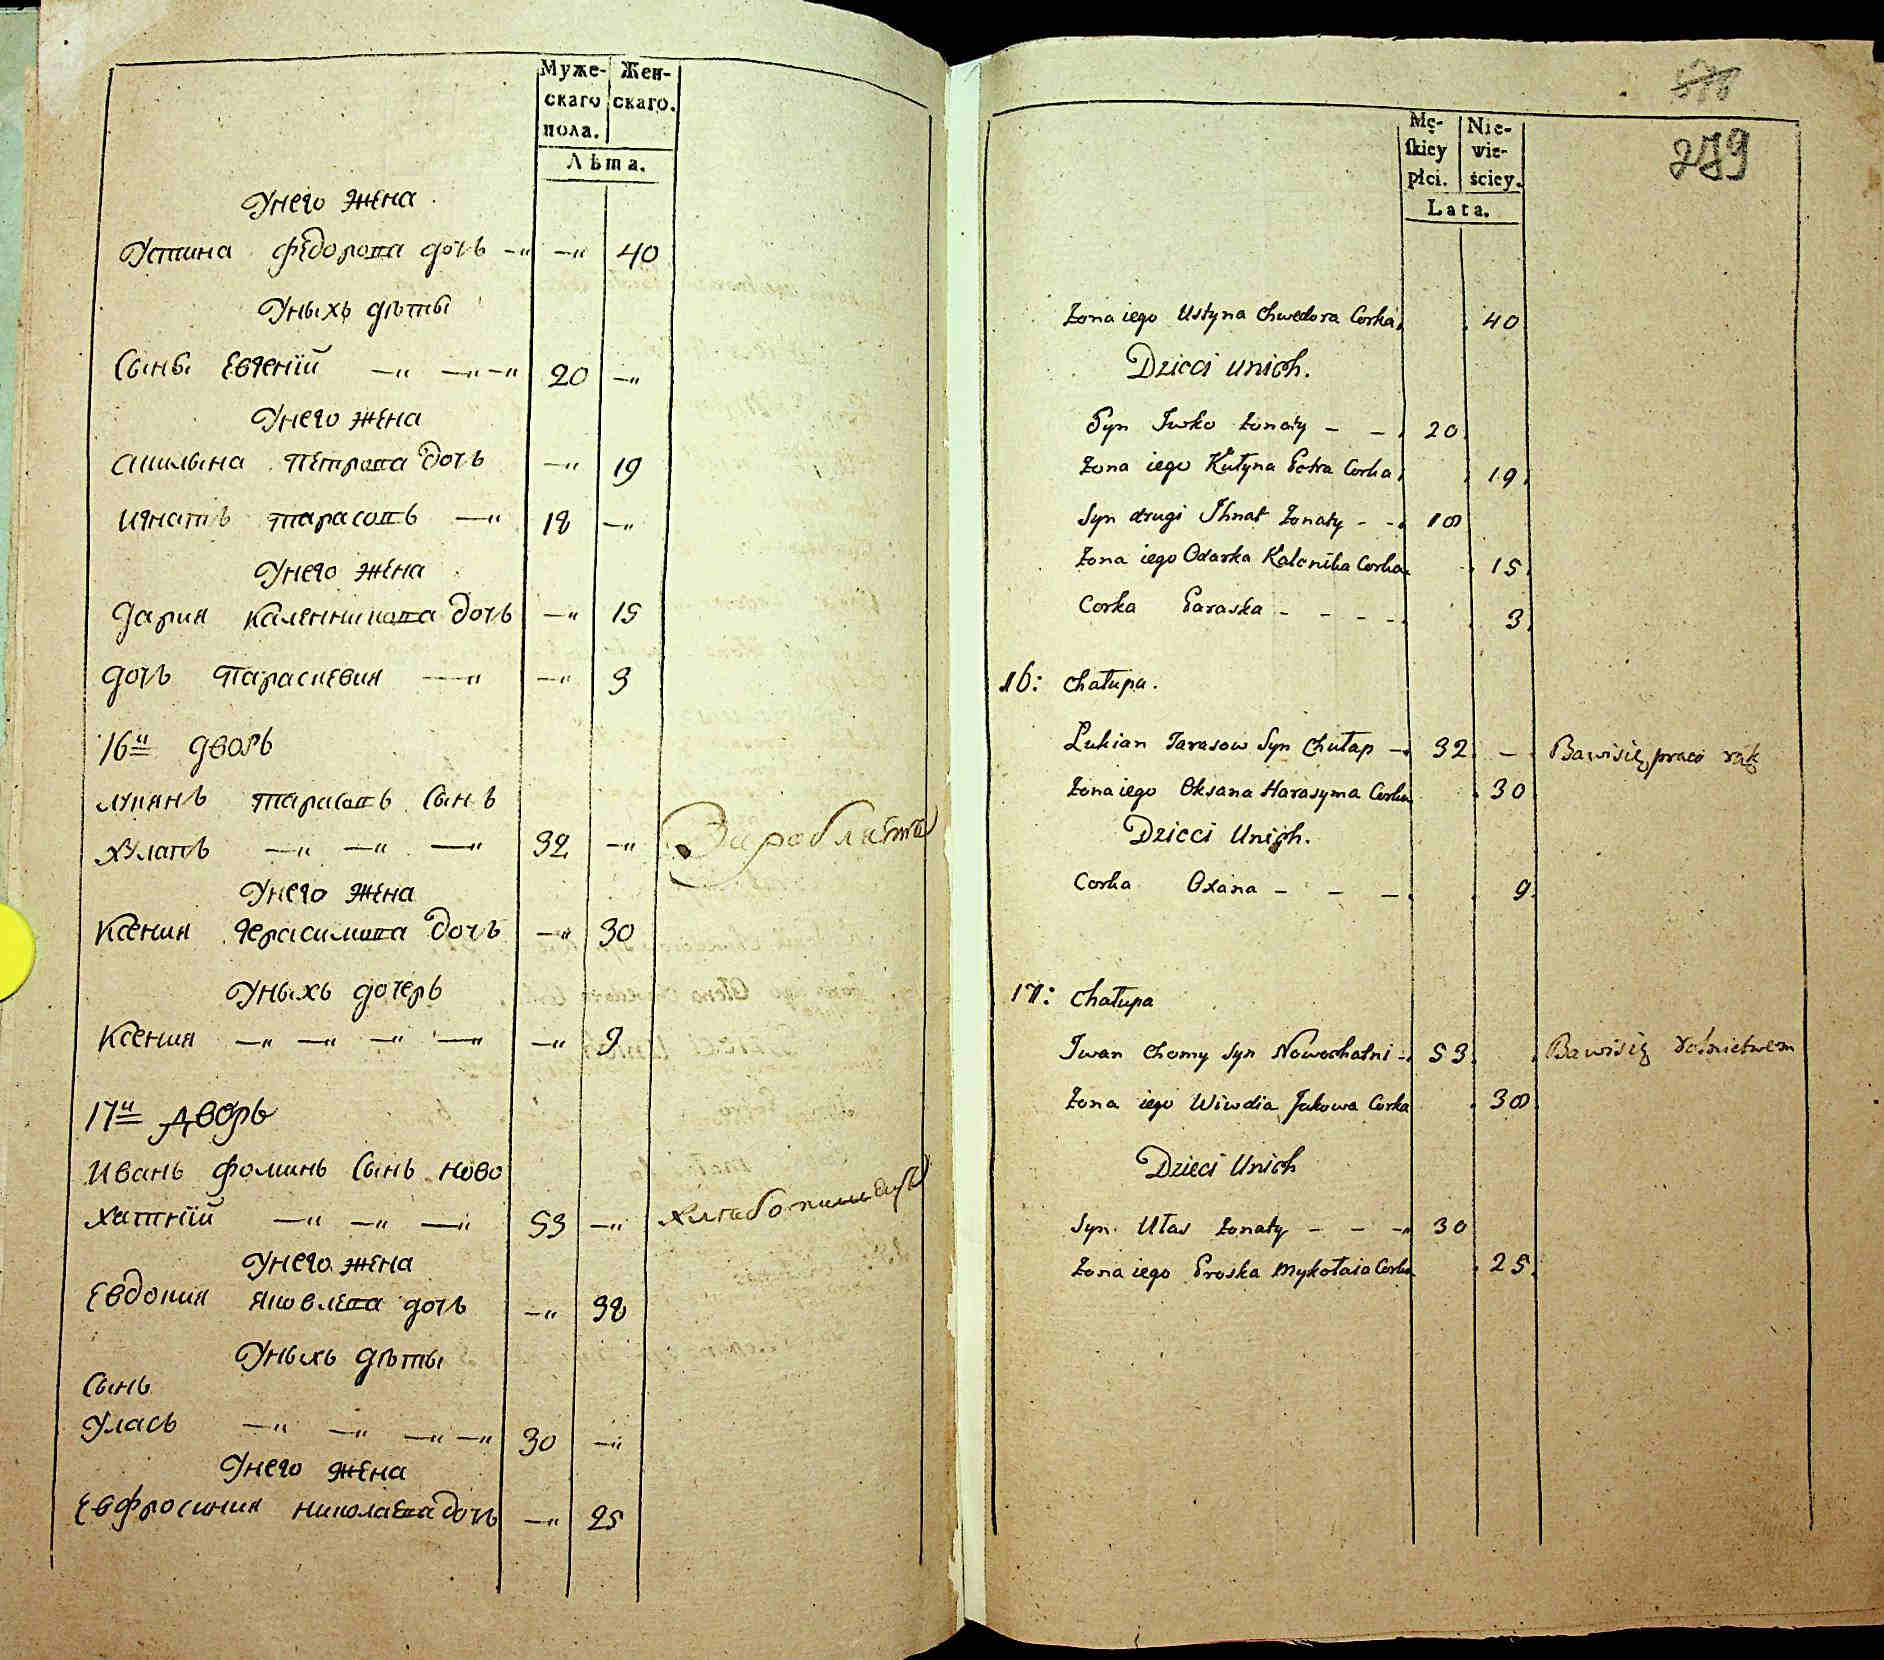 Муже-
скаго
пола.
Жен-
скаго.
Лѣта.
Унего жена
Устина Федорова дочь —„ —„ 40
Уныхъ дѣты
Сынъ Евгений —„ —„ —„ 20 —„
Унего жена
Акилына Петрова дочь —„ 19
Игнатъ тарасовъ —„ 18 —„
Унего жена
Дария Каленникова дочь —„ 15
дочь Параскевия —„ —„ 3
16й дворъ
Лукянъ тарасовъ Сынъ
Хулапъ —„ —„ —„ 32 —„
Унего жена
Ксения Герасимова дочь —„ 30
Уныхъ дочерь
Ксения —„ —„ —„ —„ —„ 9
17й дворъ
Иванъ фоминъ Сынъ ново
хатний —„ —„ —„ 53 —„ хлебопашецъ
Унего жена
Евдокия яковлева дочь —„ 38
Уныхъ дѣты
Сынъ
Уласъ —„ —„ —„ —„ 30 —„
Унего жена
Евфросиния николаева дочь —„ 25
576
279
Mę-
ſkiey
płci.
Nie-
wie-
ściey.
Lata.
Żona iego Ustyna Chwedora Corka 40
Dzieci unich.
Syn Iwko żonaty – – 20
Żona iego Kułyna Petra Corka 19
Syn drugi Ihnat żonaty - - 18
Żona iego Odarka Kalenika Corka 15
Corka Paraska – – – – 3
16: Chałupa.
Lukian Tarasow Syn Chułap – 32 – Bawisię praco rąk
Żona iego Oksana Harasyma Corka 30
Dzieci Unich.
Corka Oxana – – – 9
17: Chałupa
Iwan Chomy Syn Nowochatni – 53 Bawisię rolnictwem
Żona iego Wiwdia Jakowa Corka 38
Dzieci Unich
Syn Ułas żonaty – – – 30
Żona iego Proska Mykołaia Corka 25